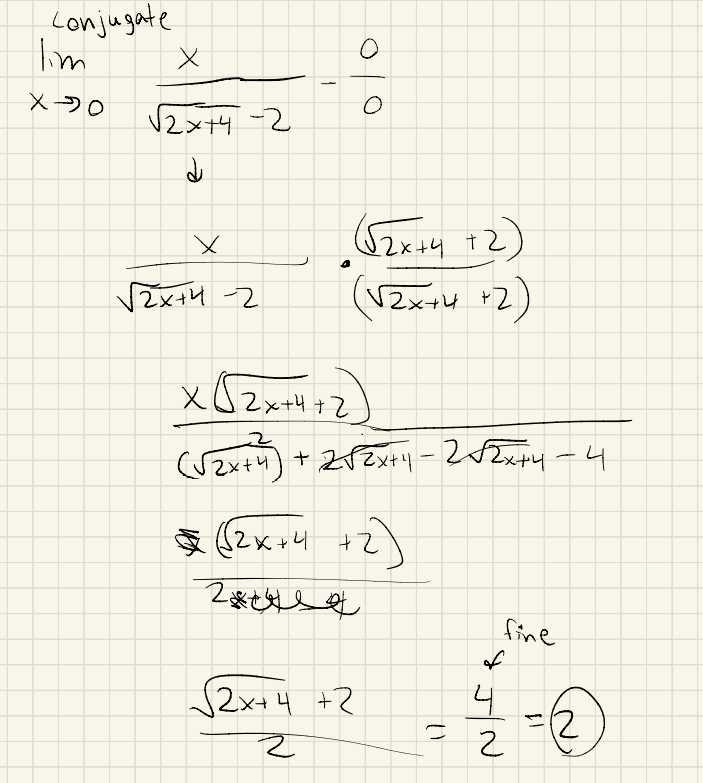 conjugate
lim x→0 x / (√2x+4 - 2) - 0/0
↓
x / (√2x+4 - 2) · (√2x+4 + 2) / (√2x+4 + 2)
x(√2x+4 + 2) / ((√2x+4)² + 2√2x+4 - 2√2x+4 - 4)
x(√2x+4 + 2) / 2x+4-4
fine
(√2x+4 + 2) / 2 = 4/2 = 2